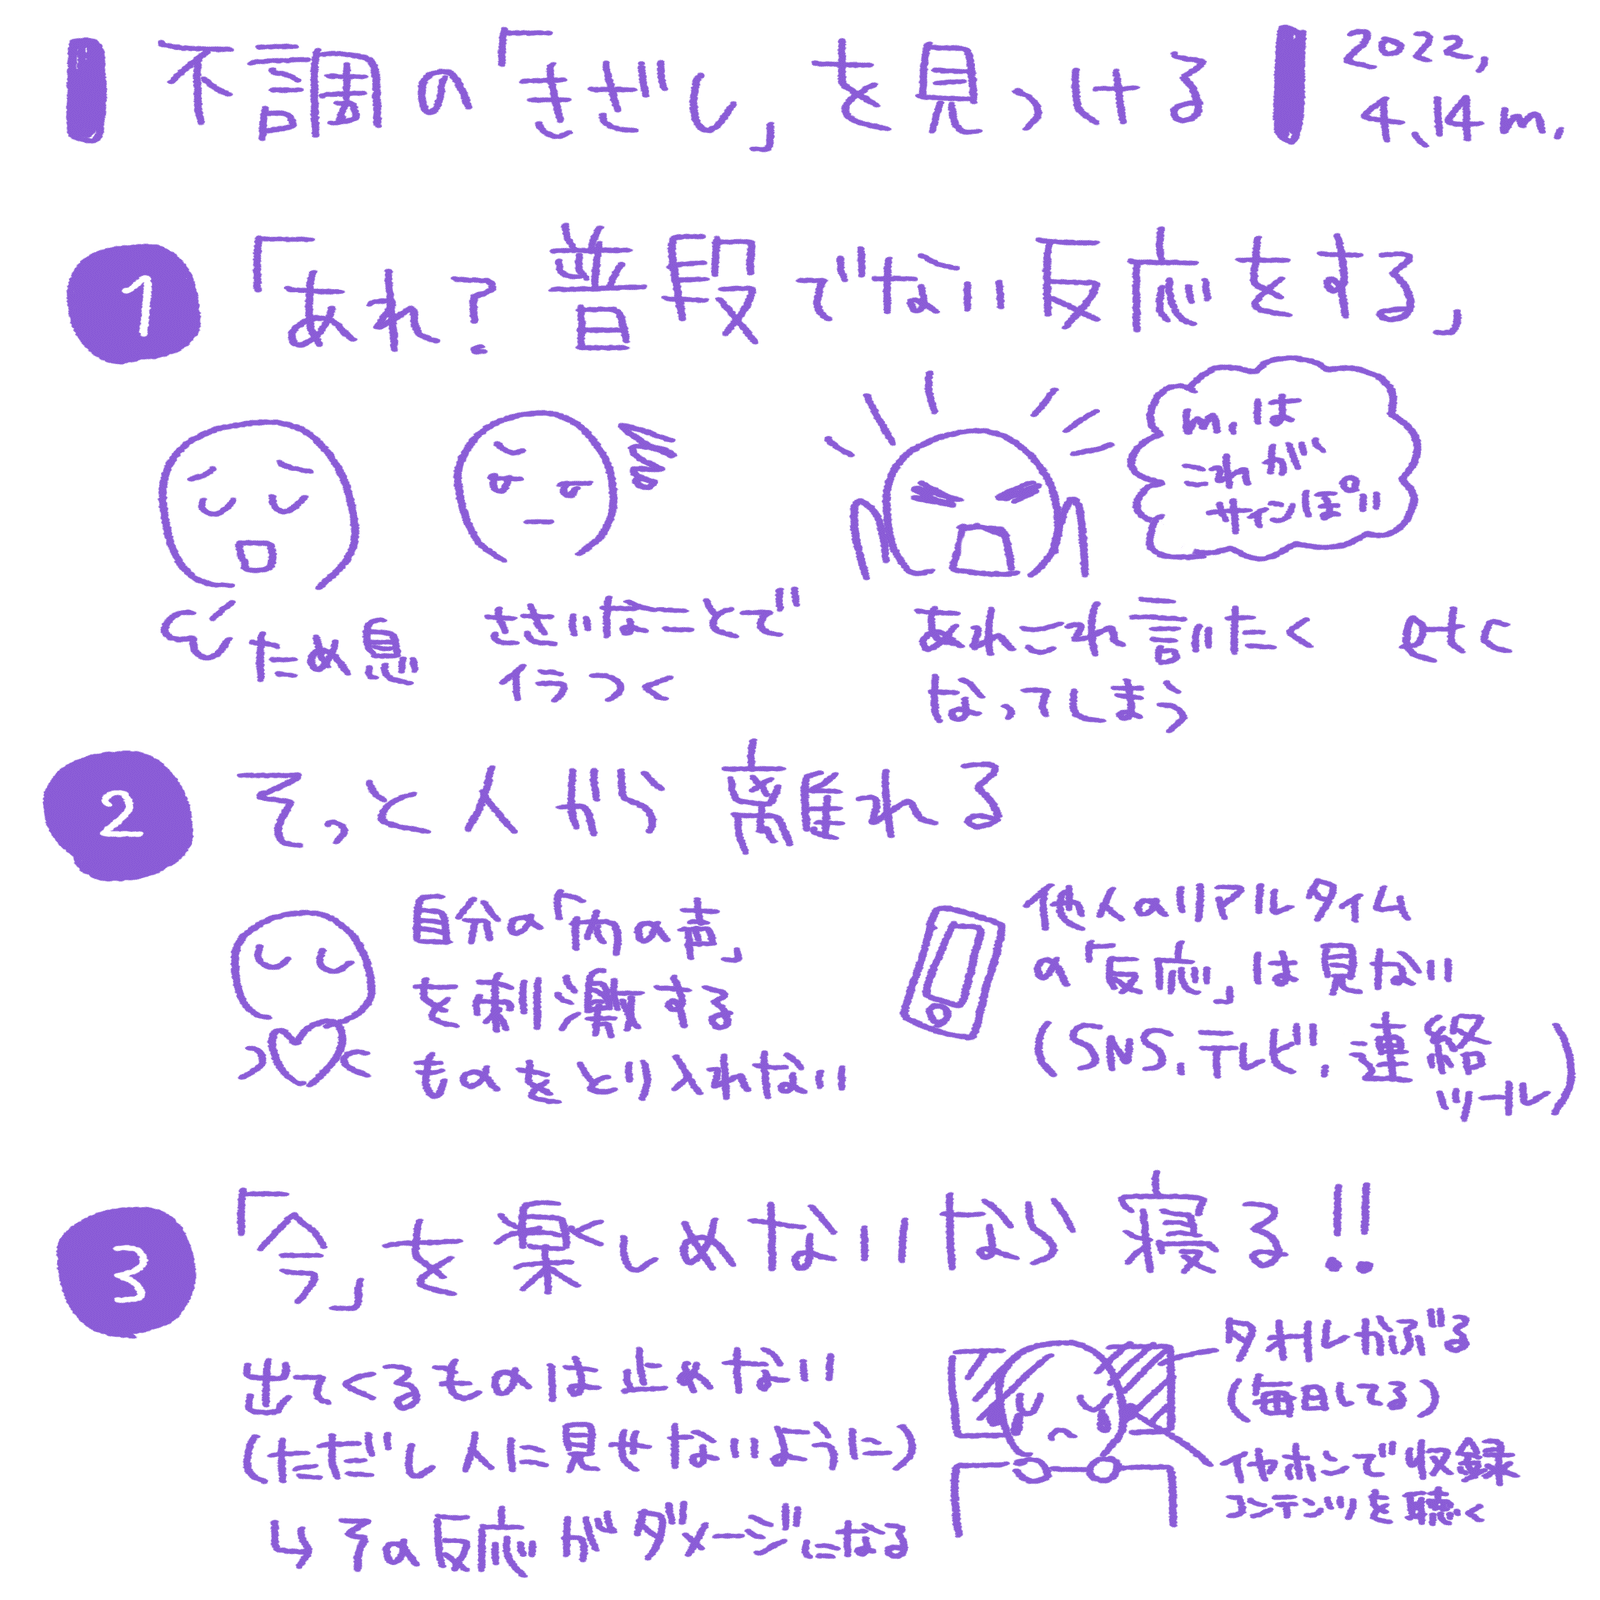 不調の「きざし」を見つける
2022,
4,14 m.
1
「あれ?普段でない反応をする」
m.は
これが
サインぽい
ため息
ささいなことで
イラつく
あれこれ言いたく
なってしまう
etc
2
そっと人から離れる
自分の「内の声」
を刺激する
ものをとり入れない
他人のリアルタイム
の「反応」は見ない
(SNS、テレビ、連絡
ツール)
3
「今」を楽しめないなら寝る!!
出てくるものは止めない
(ただし人に見せないように)
↳その反応がダメージになる
タオルかぶる
(毎日してる)
イヤホンで収録
コンテンツを聴く